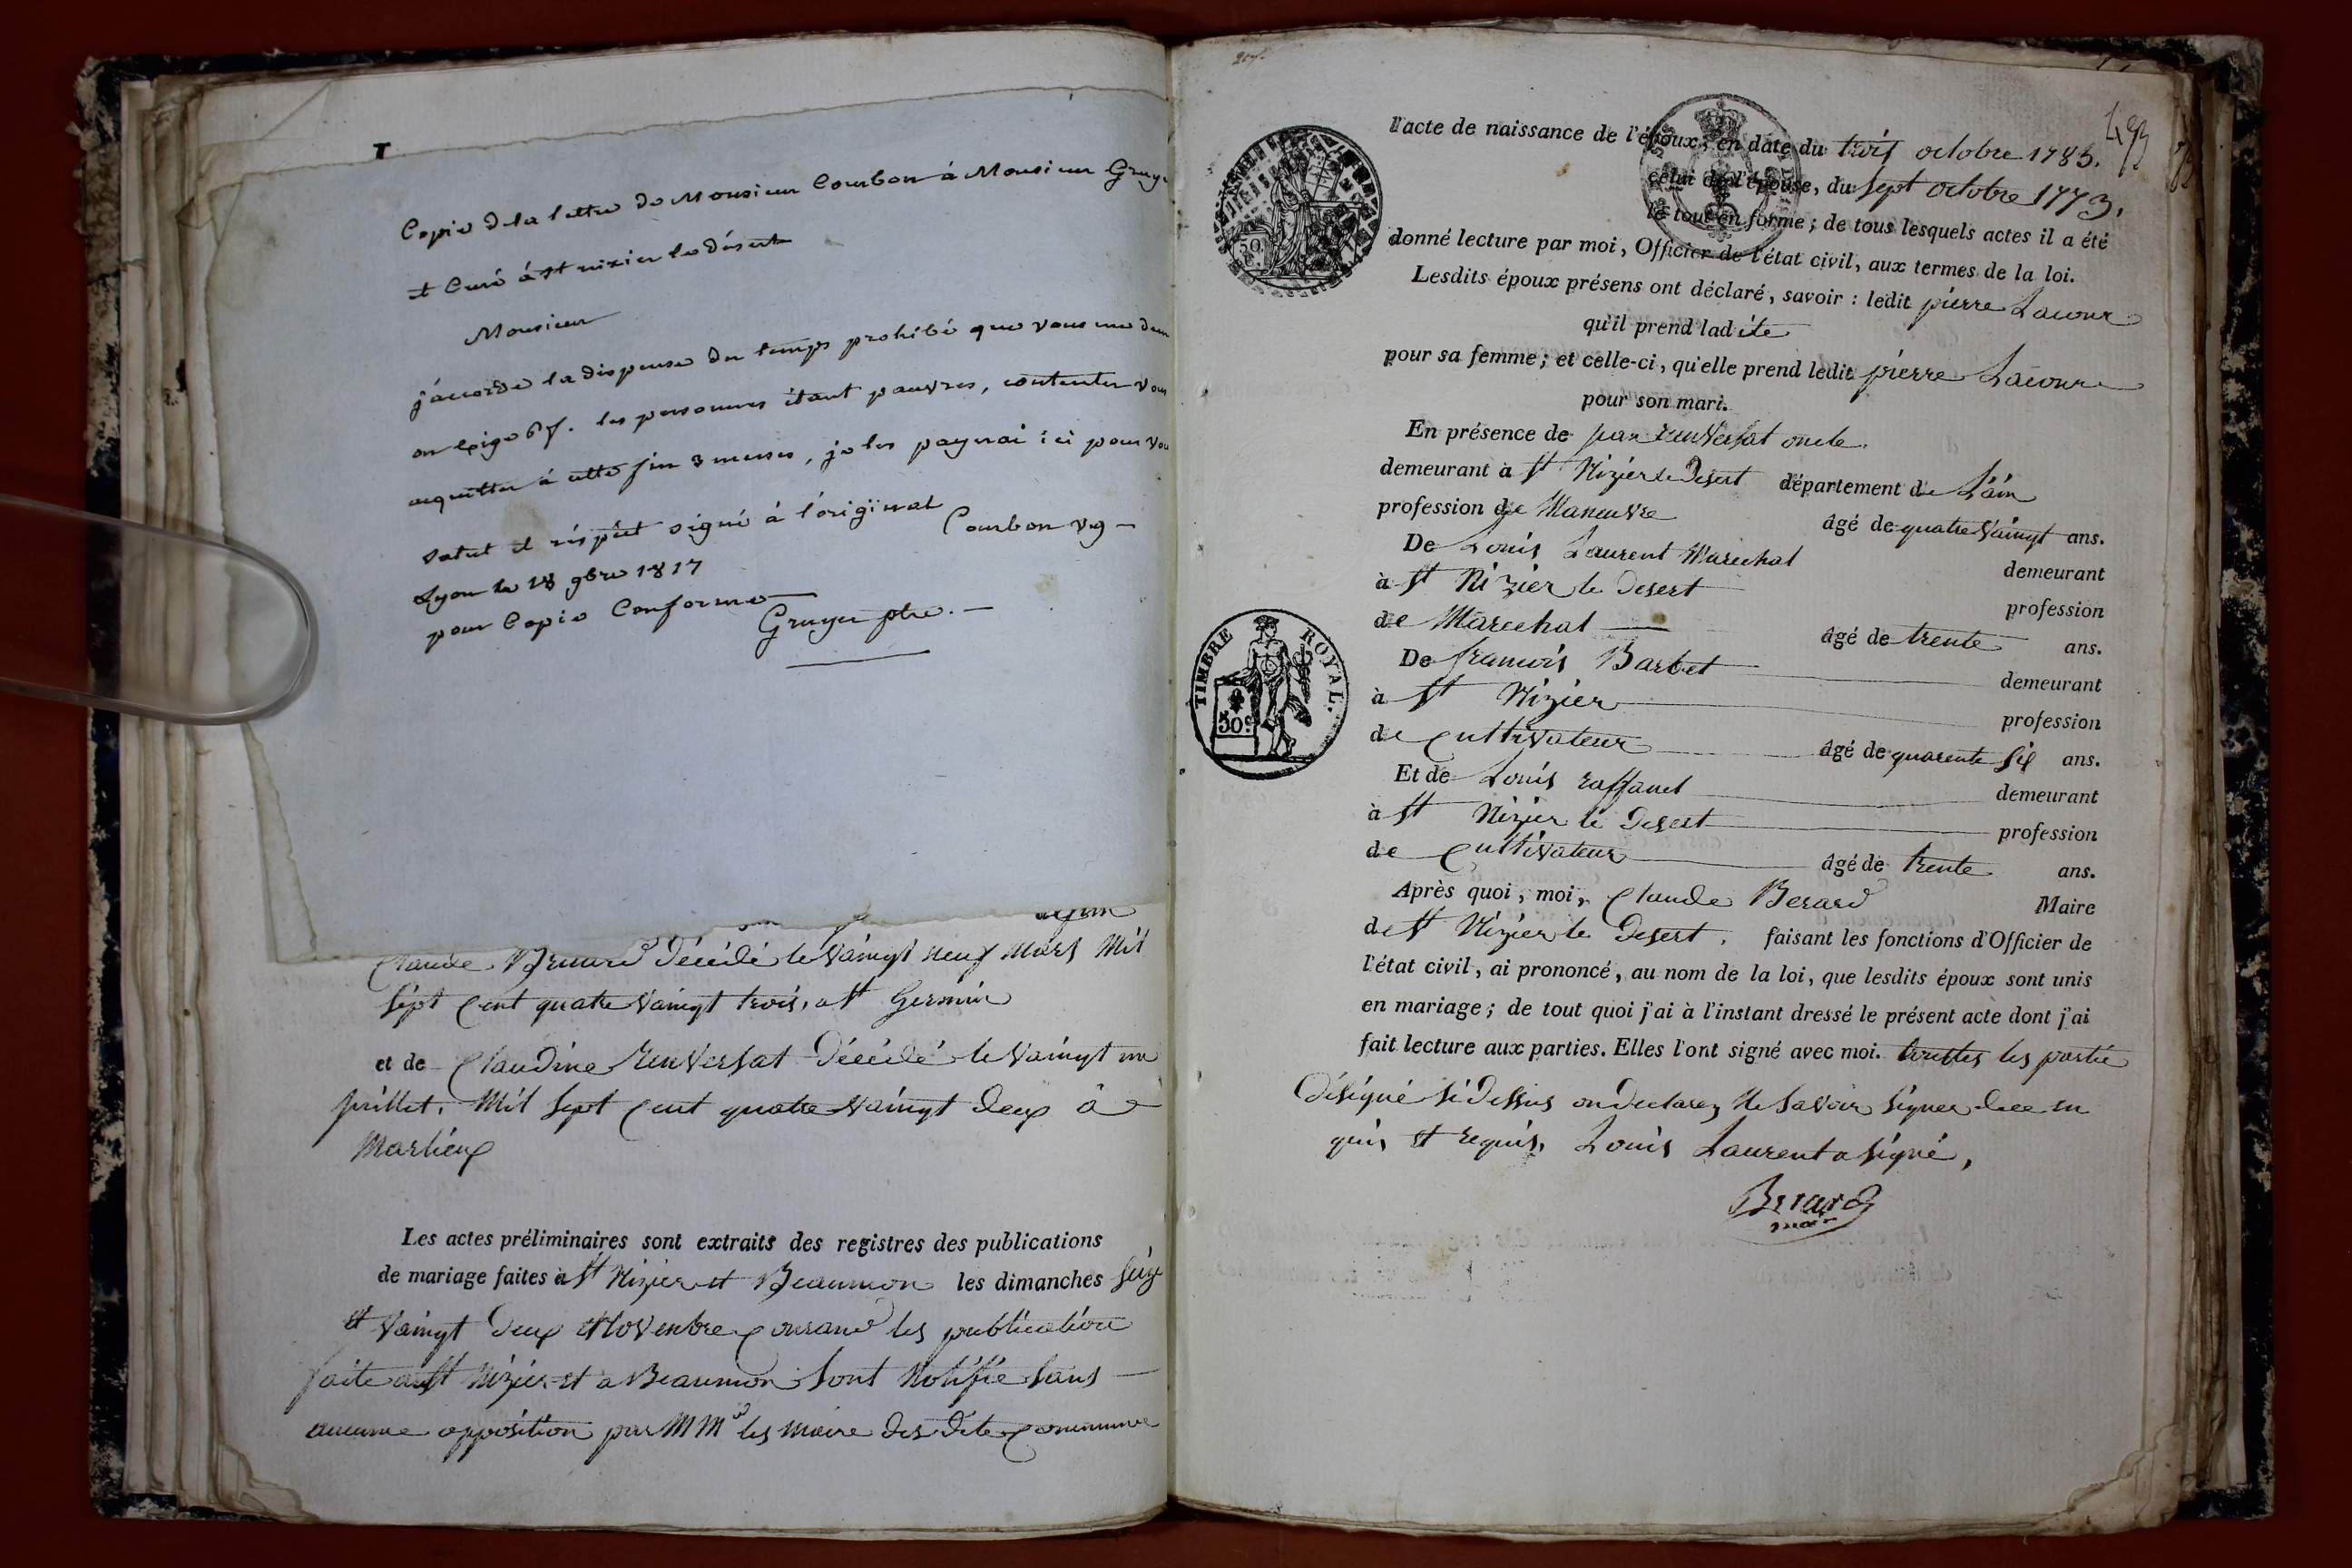 Copie de la lettre de Monsieur Courbon à Monsieur Gruy
et Curé à St nizier le désert
Monsieur
j'accorde la dispense du temps prohibé que vous me dem
on exige 6 f. les personnes étant pauvres, contenter vous
acquitter à cette fin 3 messes, je les payerai ici pour vou
salut et réspect signé à l'original
Courbon vg
Lyon le 18 9bre 1817
pour Copie Conforme
Gruyer ptre.
Claude Bruard décédé le vaingt neuf Mars Mil
sept Cent quatre vaingt trois, a St Germin
et de Claudine renversat décédé le vaingt un
juillet, Mil sept Cent quatre vaingt deux à
Marlieux
Les actes préliminaires sont extraits des registres des publications
de mariage faites à St Nizier et Beaumon les dimanches seize
et vaingt deux Novenbre Courand les publication
faite a St Nizier et a Beaumon sont Notifié sans
aucune opposition par MM les maire des dite Commune
207
l'acte de naissance de l'époux, en date du trois octobre 1785.
celui de l'épouse, du sept octobre 1773.
le tout en forme; de tous lesquels actes il a été
donné lecture par moi, Officier de l'état civil, aux termes de la loi.
Lesdits époux présens ont déclaré, savoir : ledit pierre Lacour
qu'il prend ladite
pour sa femme; et celle-ci, qu'elle prend ledit pierre Lacour
pour son mari.
En présence de jean renversat oncle
demeurant à St Nizier le Desert département de L'ain
profession de Maneuvre âgé de quatre vaingt ans.
De Louis Laurent Marechal demeurant
à St Nizier le Desert profession
de Marechal âgé de trente ans.
De francois Barbet demeurant
à St Nizier profession
de Cultivateur âgé de quarente six ans.
Et de Louis raffanel demeurant
à St Nizier le Desert profession
de Cultivateur âgé de trente ans.
Après quoi, moi, Claude Berard Maire
de St Nizier le Desert, faisant les fonctions d'Officier de
l'état civil, ai prononcé, au nom de la loi, que lesdits époux sont unis
en mariage; de tout quoi j'ai à l'instant dressé le présent acte dont j'ai
fait lecture aux parties. Elles l'ont signé avec moi. toustes les partie
désigné si dessus on declarez Ne savoir signer de ce en
quis et requis, Louis Laurent a signé,
Berard
maire
50 c.
TIMBRE ROYAL.
50 c.